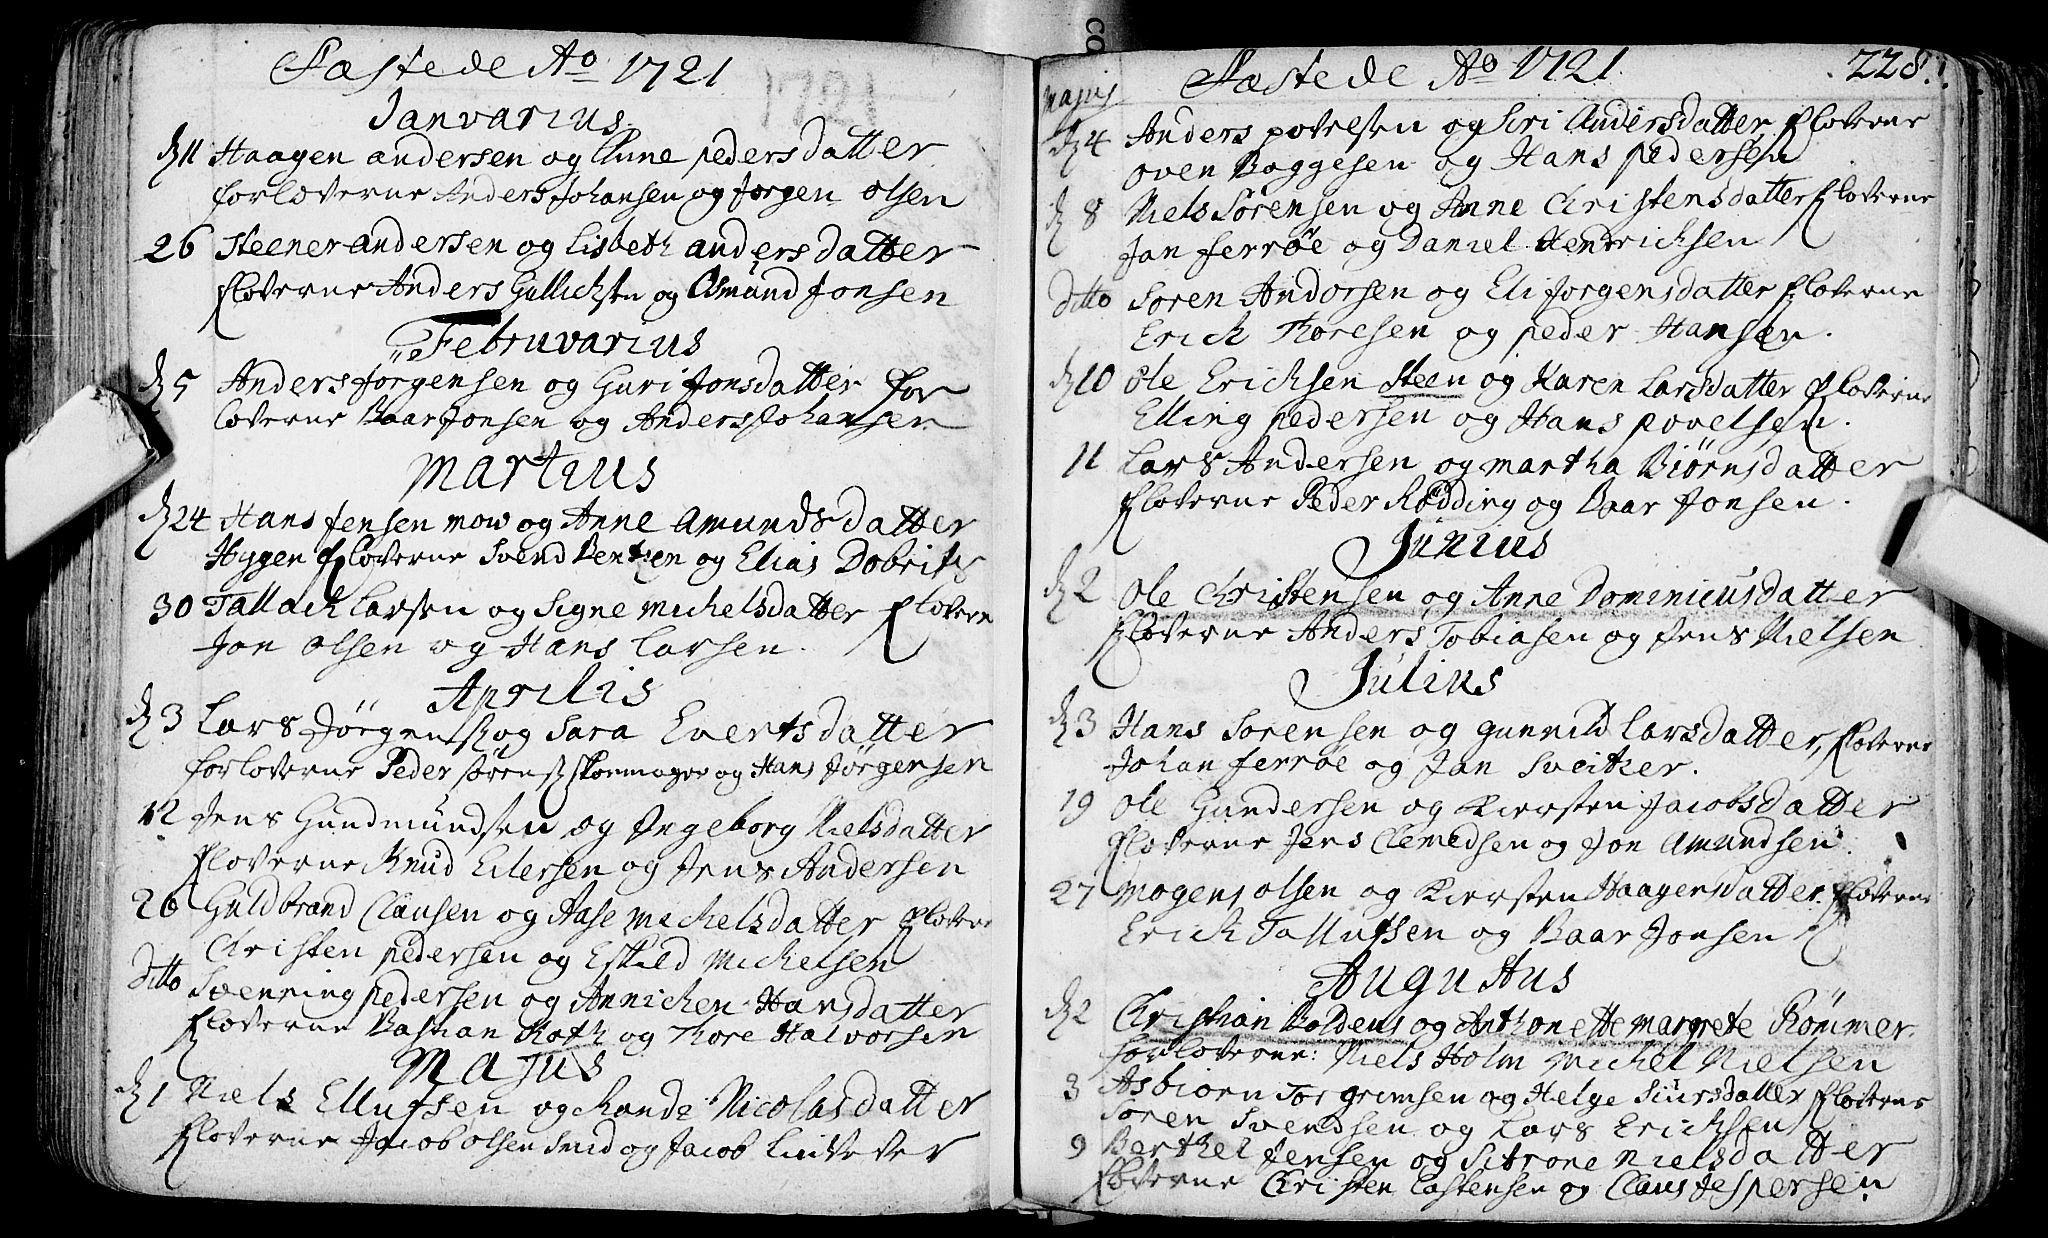 Fæstede Ao 1721
1721
Janvarius
d 11 Haagen andersen og Anne pedersdatter
forloverne Anders Johansen og Jørgen olsen
26 Steener andersen og Lisbeth andersdatter
floverne Anders Gullichsen og Osmund Jonsen
Februvarius
d 5 Anders Jørgensen og Guri Jonsdatter for
loverne Baar Jonsen og Anders Johansen
Martius
d 24 Hans Jensen mow og Anne Amundsdatter
Hyggen floverne Svend Bentzen og Elias
30 Tallach Larsen og Signe Michelsdatter flovern
Jon olsen og Hans Larsen.
Aprilis
d 3 Lars Jørgens og Sara Evertsdatter
forloverne Peder sørens skoemager og Hans Jørgensen
12 Jens Gundmundsen og Ingeborg Nielsdatter
floverne Knud Eilersen og Jens Andersen
26 Guldbrand Clausen og Aase Michelsdatter flovrne
Christen pedersen og Eskild Michelsen
ditto Svenning pedersen og Annichen Hansdatter
floverne Bastian Roth og Thore Halvorsen
Majus
d 1 Niels Ellufsen og Rande Nicolasdatter
floverne Jacob olsen Smid og Jacob
Fæstede Ao 1721. 228.
Majus
d 4 Anders povelsen og Siri Andersdatter floverne
oven Baggesen og Hans pedersen
d 8 Niels Sørensen og Anne Christensdatter floverne
Jan ferrøe og Daniel Hendrichsen
ditto Søren Andorsen og Eli Jorgensdatter floverne
Erich Thoresen og peder Hansen.
d 10 Ole Erichsen Steen og Karen Larsdatter floverne
Elling pedersen og Hans povelsen.
11 Lars Andersen og Martha Biørnsdatter
floverne Peder Rødding og Baar Jonsen.
Junius
d 2 Ole Christensen og Anne Dominicusdatter
floverne Anders Tobiasen og Jens Nielsen
Julius
d 3 Hans Sorensen og gunnild Larsdatter, floverne
Johan ferrøe og Jan Sveitzer.
19 Ole Gundersen og Kiersten Jacobsdatter
floverne Jens Clemedsen og Jon Amundsen.
27 Mogens olsen og Kiersten Haagensdatter. floverne
Erich Tallufsen og Baar Jonsen
Augustus
d 2 Christian Boldens og Anthonette Margrete Rømmer.
forloverne: Niels Holm Michel Nielsen
3 Asbiorn Torgrimsen og Helge Siursdatter floverne
Søren Svendsen og Lars Erichsen
9 Berthel Jensen og Sitrone Nielsdatter
floverne Christen Castensen og Claus Jespersen